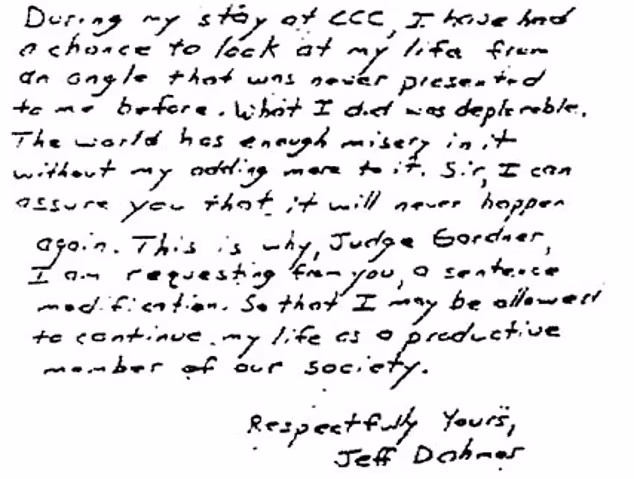 During my stay at CCC, I have had
a chance to look at my life from
an angle that was never presented
to me before. What I did was deplorable.
The world has enough misery in it
without my adding more to it. Sir, I can
assure you that it will never happen
again. This is why, Judge Gardner,
I am requesting from you, a sentence
modification. So that I may be allowed
to continue my life as a productive
member of our society.
Respectfully Yours,
Jeff Dahmer